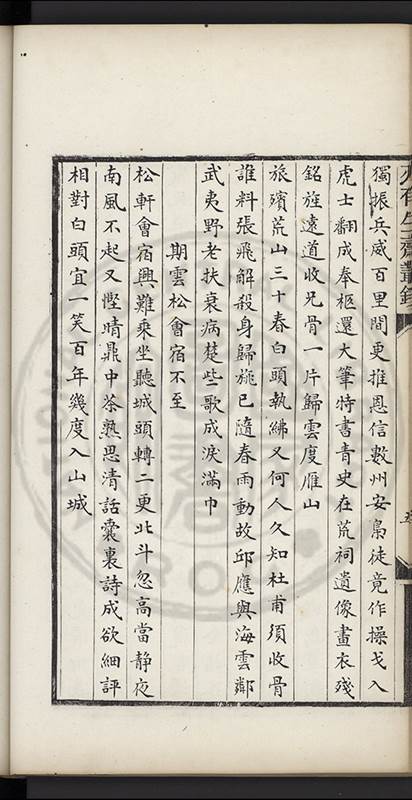 獨振兵威百里間更推恩信數州安梟徒竟作操戈入
虎士翻成奉柩還大筆特書青史在荒祠遺像畫衣殘
銘旌遠道收兄骨一片歸雲度雁山
旅殯荒山三十春白頭執紼又何人久知杜甫須收骨
誰料張飛解殺身歸旐已隨春雨動故邱應與海雲鄰
武夷野老扶衰病楚些歌成淚滿巾
期雲松會宿不至
松軒會宿興難乘坐聽城頭轉二更北斗忽高當靜夜
南風不起又慳晴鼎中茶熟思清話囊裏詩成欲細評
相對白頭宜一笑百年幾度入山城